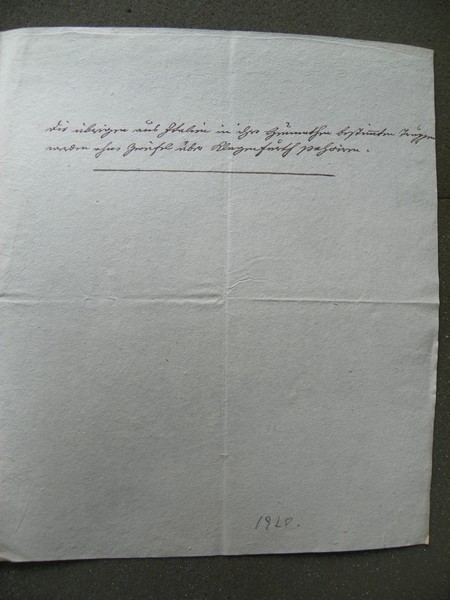 Die übrigen aus Italien in ihre Heimathen bestimmten Truppen
werden ohne Zweifel über Klagenfurth pahsiren.
1920.